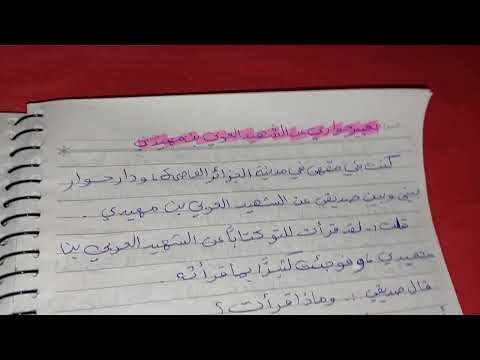 تعبير حواري عن الشهيد العربي بن مهيدي
كنت في مقهى في مدينة الجزائر العاصمة، ودار حوار
بيني وبين صديقي عن الشهيد العربي بن مهيدي.
قلت: لقد قرأت للتو كتاباً عن الشهيد العربي بن
مهيدي، وفوجئت لشدّا بما قرأته.
قال صديقي: وماذا قرأت؟